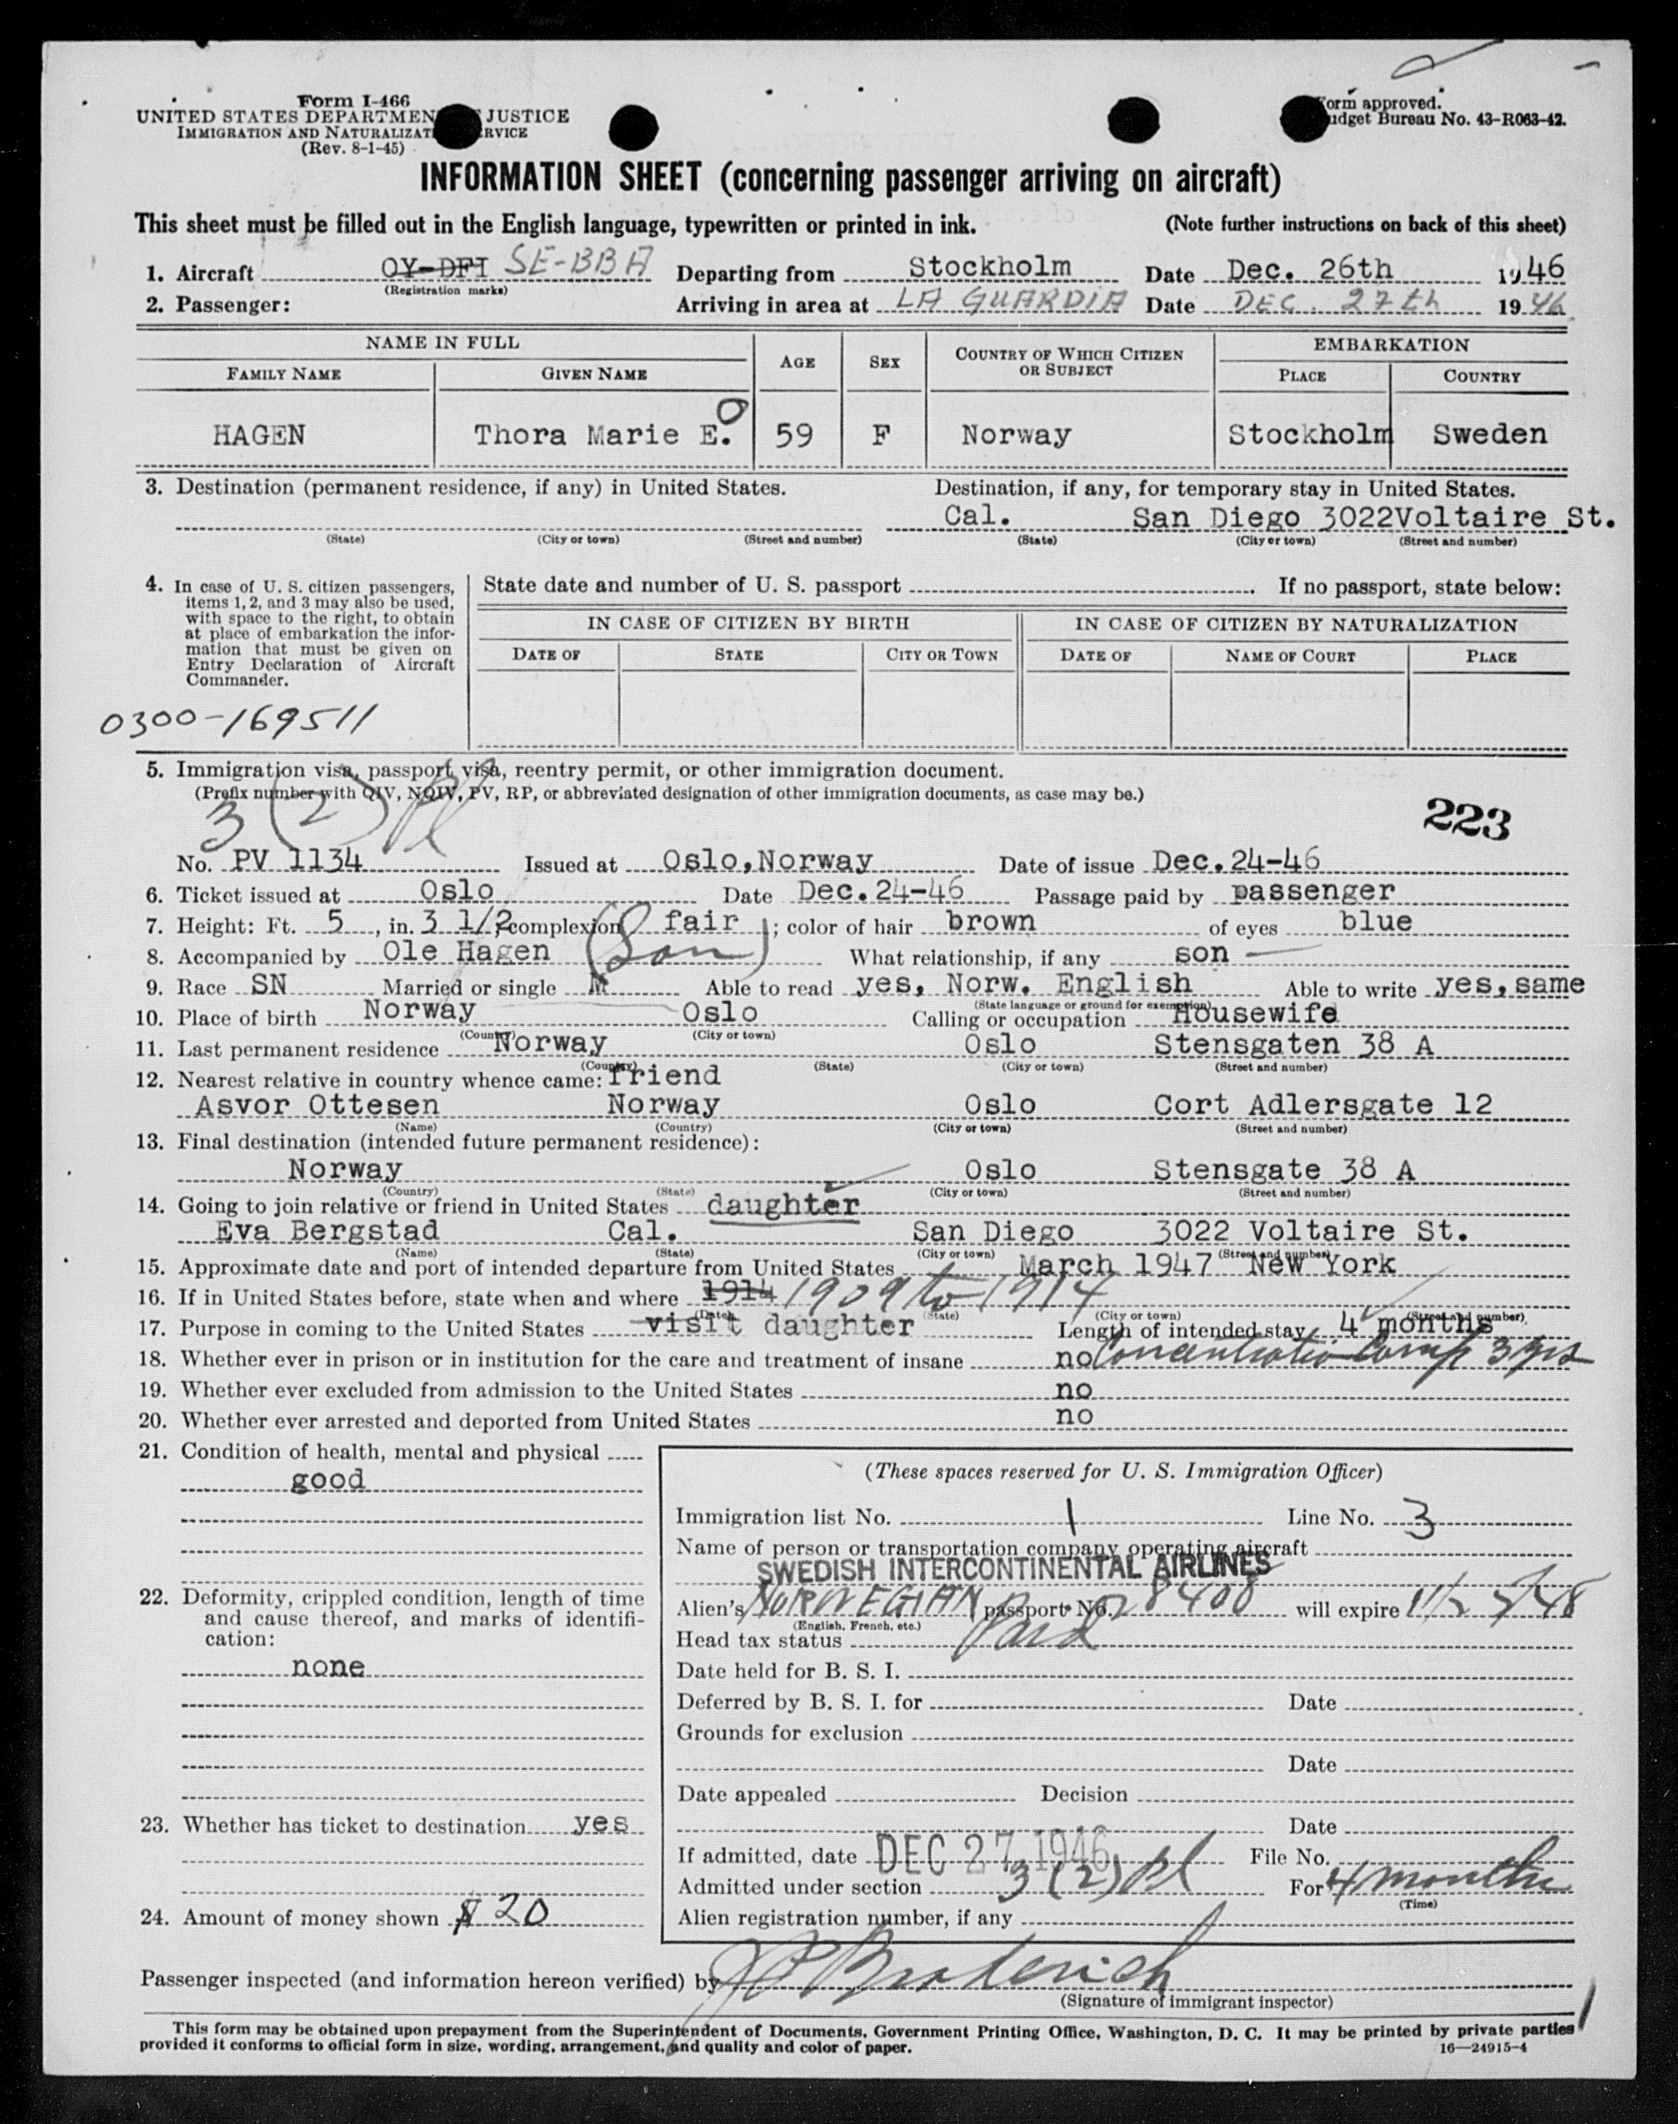 Form I-466
UNITED STATES DEPARTMEN JUSTICE
IMMIGRATION AND NATURALIZAT RVICE
(Rev. 8-1-45)
orm approved.
udget Bureau No. 43-R063-42.
INFORMATION SHEET (concerning passenger arriving on aircraft)
This sheet must be filled out in the English language, typewritten or printed in ink. (Note further instructions on back of this sheet)
1. Aircraft OY-DFI SE-BBA Departing from Stockholm Date Dec. 26th 1946
(Registration marks)
2. Passenger: Arriving in area at LA GUARDIA Date DEC. 27th 1946
NAME IN FULL AGE SEX COUNTRY OF WHICH CITIZEN OR SUBJECT EMBARKATION
FAMILY NAME GIVEN NAME PLACE COUNTRY
HAGEN Thora Marie E. O 59 F Norway Stockholm Sweden
3. Destination (permanent residence, if any) in United States. Destination, if any, for temporary stay in United States.
Cal. San Diego 3022Voltaire St.
(State) (City or town) (Street and number) (State) (City or town) (Street and number)
4. In case of U. S. citizen passengers, items 1, 2, and 3 may also be used, with space to the right, to obtain at place of embarkation the information that must be given on Entry Declaration of Aircraft Commander.
State date and number of U. S. passport If no passport, state below:
IN CASE OF CITIZEN BY BIRTH IN CASE OF CITIZEN BY NATURALIZATION
DATE OF STATE CITY OR TOWN DATE OF NAME OF COURT PLACE
0300-169511
5. Immigration visa, passport visa, reentry permit, or other immigration document.
(Prefix number with QIV, NQIV, PV, RP, or abbreviated designation of other immigration documents, as case may be.)
3 (2)
223
No. PV 1134 Issued at Oslo, Norway Date of issue Dec.24-46
6. Ticket issued at Oslo Date Dec.24-46 Passage paid by passenger
7. Height: Ft. 5, in. 3 1/2; complexion fair; color of hair brown of eyes blue
8. Accompanied by Ole Hagen (Son) What relationship, if any son
9. Race SN Married or single M Able to read yes, Norw. English Able to write yes, same
(State language or ground for exemption)
10. Place of birth Norway Oslo Calling or occupation Housewife
(Country) (City or town)
11. Last permanent residence Norway Oslo Stensgaten 38 A
(Country) (State) (City or town) (Street and number)
12. Nearest relative in country whence came: friend
Asvor Ottesen Norway Oslo Cort Adlersgate 12
(Name) (Country) (City or town) (Street and number)
13. Final destination (intended future permanent residence):
Norway Oslo Stensgate 38 A
(Country) (State) (City or town) (Street and number)
14. Going to join relative or friend in United States daughter
Eva Bergstad Cal. San Diego 3022 Voltaire St.
(Name) (State) (City or town) (Street and number)
15. Approximate date and port of intended departure from United States March 1947 New York
16. If in United States before, state when and where 1914 1909 to 1914
(Date) (State) (City or town) (Street and number)
17. Purpose in coming to the United States visit daughter Length of intended stay 4 months
18. Whether ever in prison or in institution for the care and treatment of insane no Concentration Camp 3 yrs
19. Whether ever excluded from admission to the United States no
20. Whether ever arrested and deported from United States no
21. Condition of health, mental and physical
good
22. Deformity, crippled condition, length of time and cause thereof, and marks of identification:
none
23. Whether has ticket to destination yes
24. Amount of money shown $ 20
(These spaces reserved for U. S. Immigration Officer)
Immigration list No. 1 Line No. 3
Name of person or transportation company operating aircraft
SWEDISH INTERCONTINENTAL AIRLINES
Alien's NORWEGIAN passport No. 28408 will expire
(English, French, etc.)
Head tax status Paid
Date held for B. S. I.
Deferred by B. S. I. for Date
Grounds for exclusion
Date
Date appealed Decision
Date
If admitted, date DEC 27 1946 File No.
Admitted under section 3 (2) For 4 months
(Time)
Alien registration number, if any
Passenger inspected (and information hereon verified) by J P Broderick
(Signature of immigrant inspector)
This form may be obtained upon prepayment from the Superintendent of Documents, Government Printing Office, Washington, D. C. It may be printed by private parties
provided it conforms to official form in size, wording, arrangement, and quality and color of paper. 16—24915-4